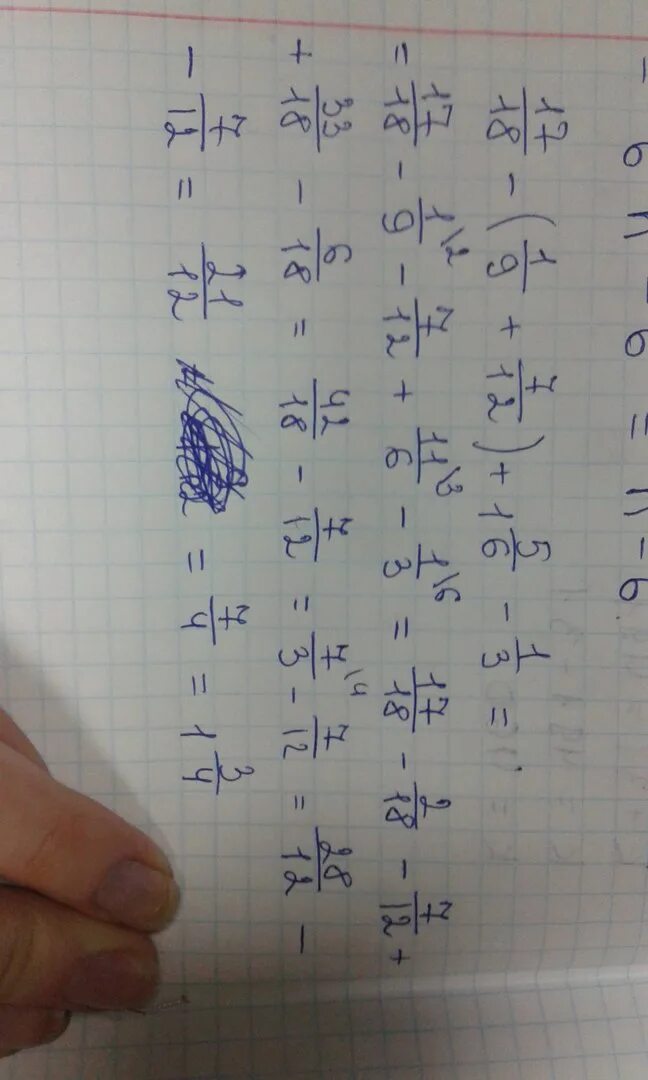 - 6 n - 6 = n - 6
17/18 - (1/9 + 7/12) + 1 5/6 - 1/3 =
= 17/18 - 1/9\2 - 7/12 + 11/6\3 - 1/3\6 = 17/18 - 2/18 - 7/12 +
+ 33/18 - 6/18 = 42/18 - 7/12 = 7/3\4 - 7/12 = 28/12 -
- 7/12 = 21/12 = 7/4 = 1 3/4